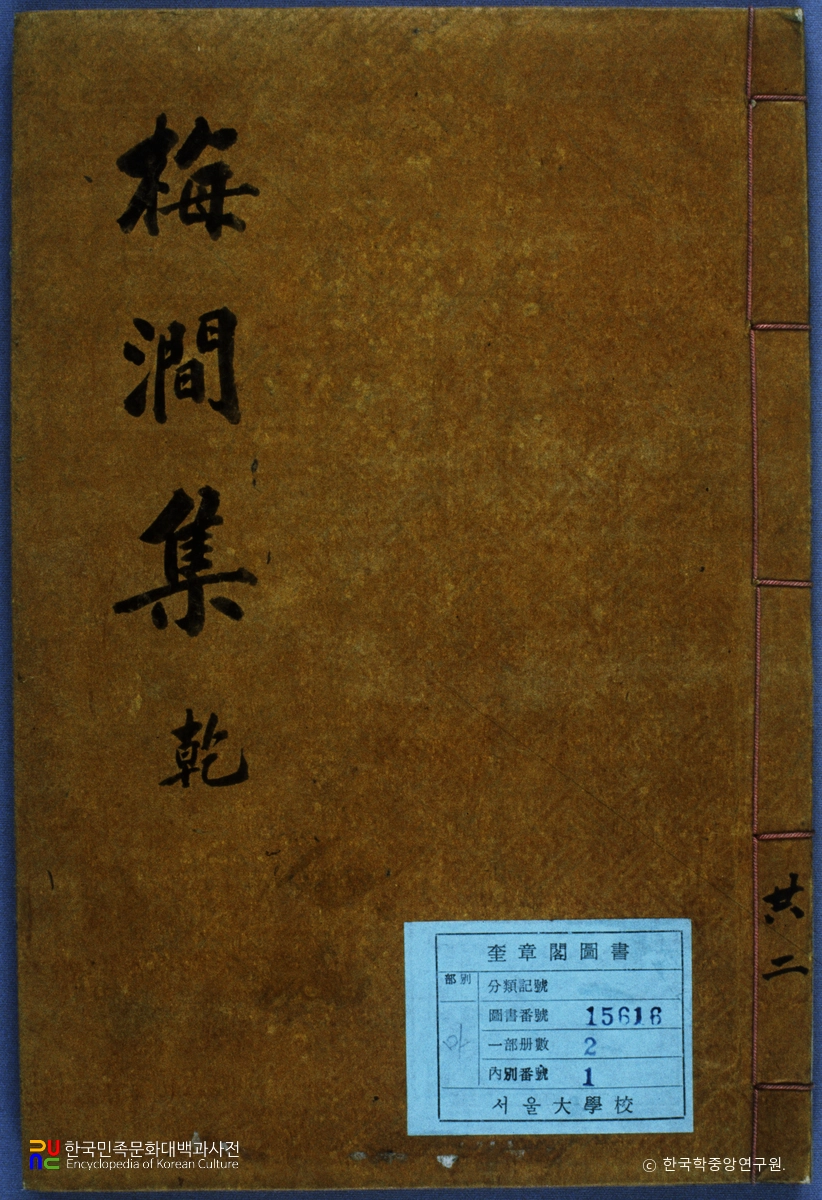 梅澗集 乾
共二
奎章閣圖書
部別
分類記號
圖書番號 15616
一部册數 2
內別番號 1
서울大學校
한국민족문화대백과사전
Encyclopedia of Korean Culture
ⓒ 한국학중앙연구원.